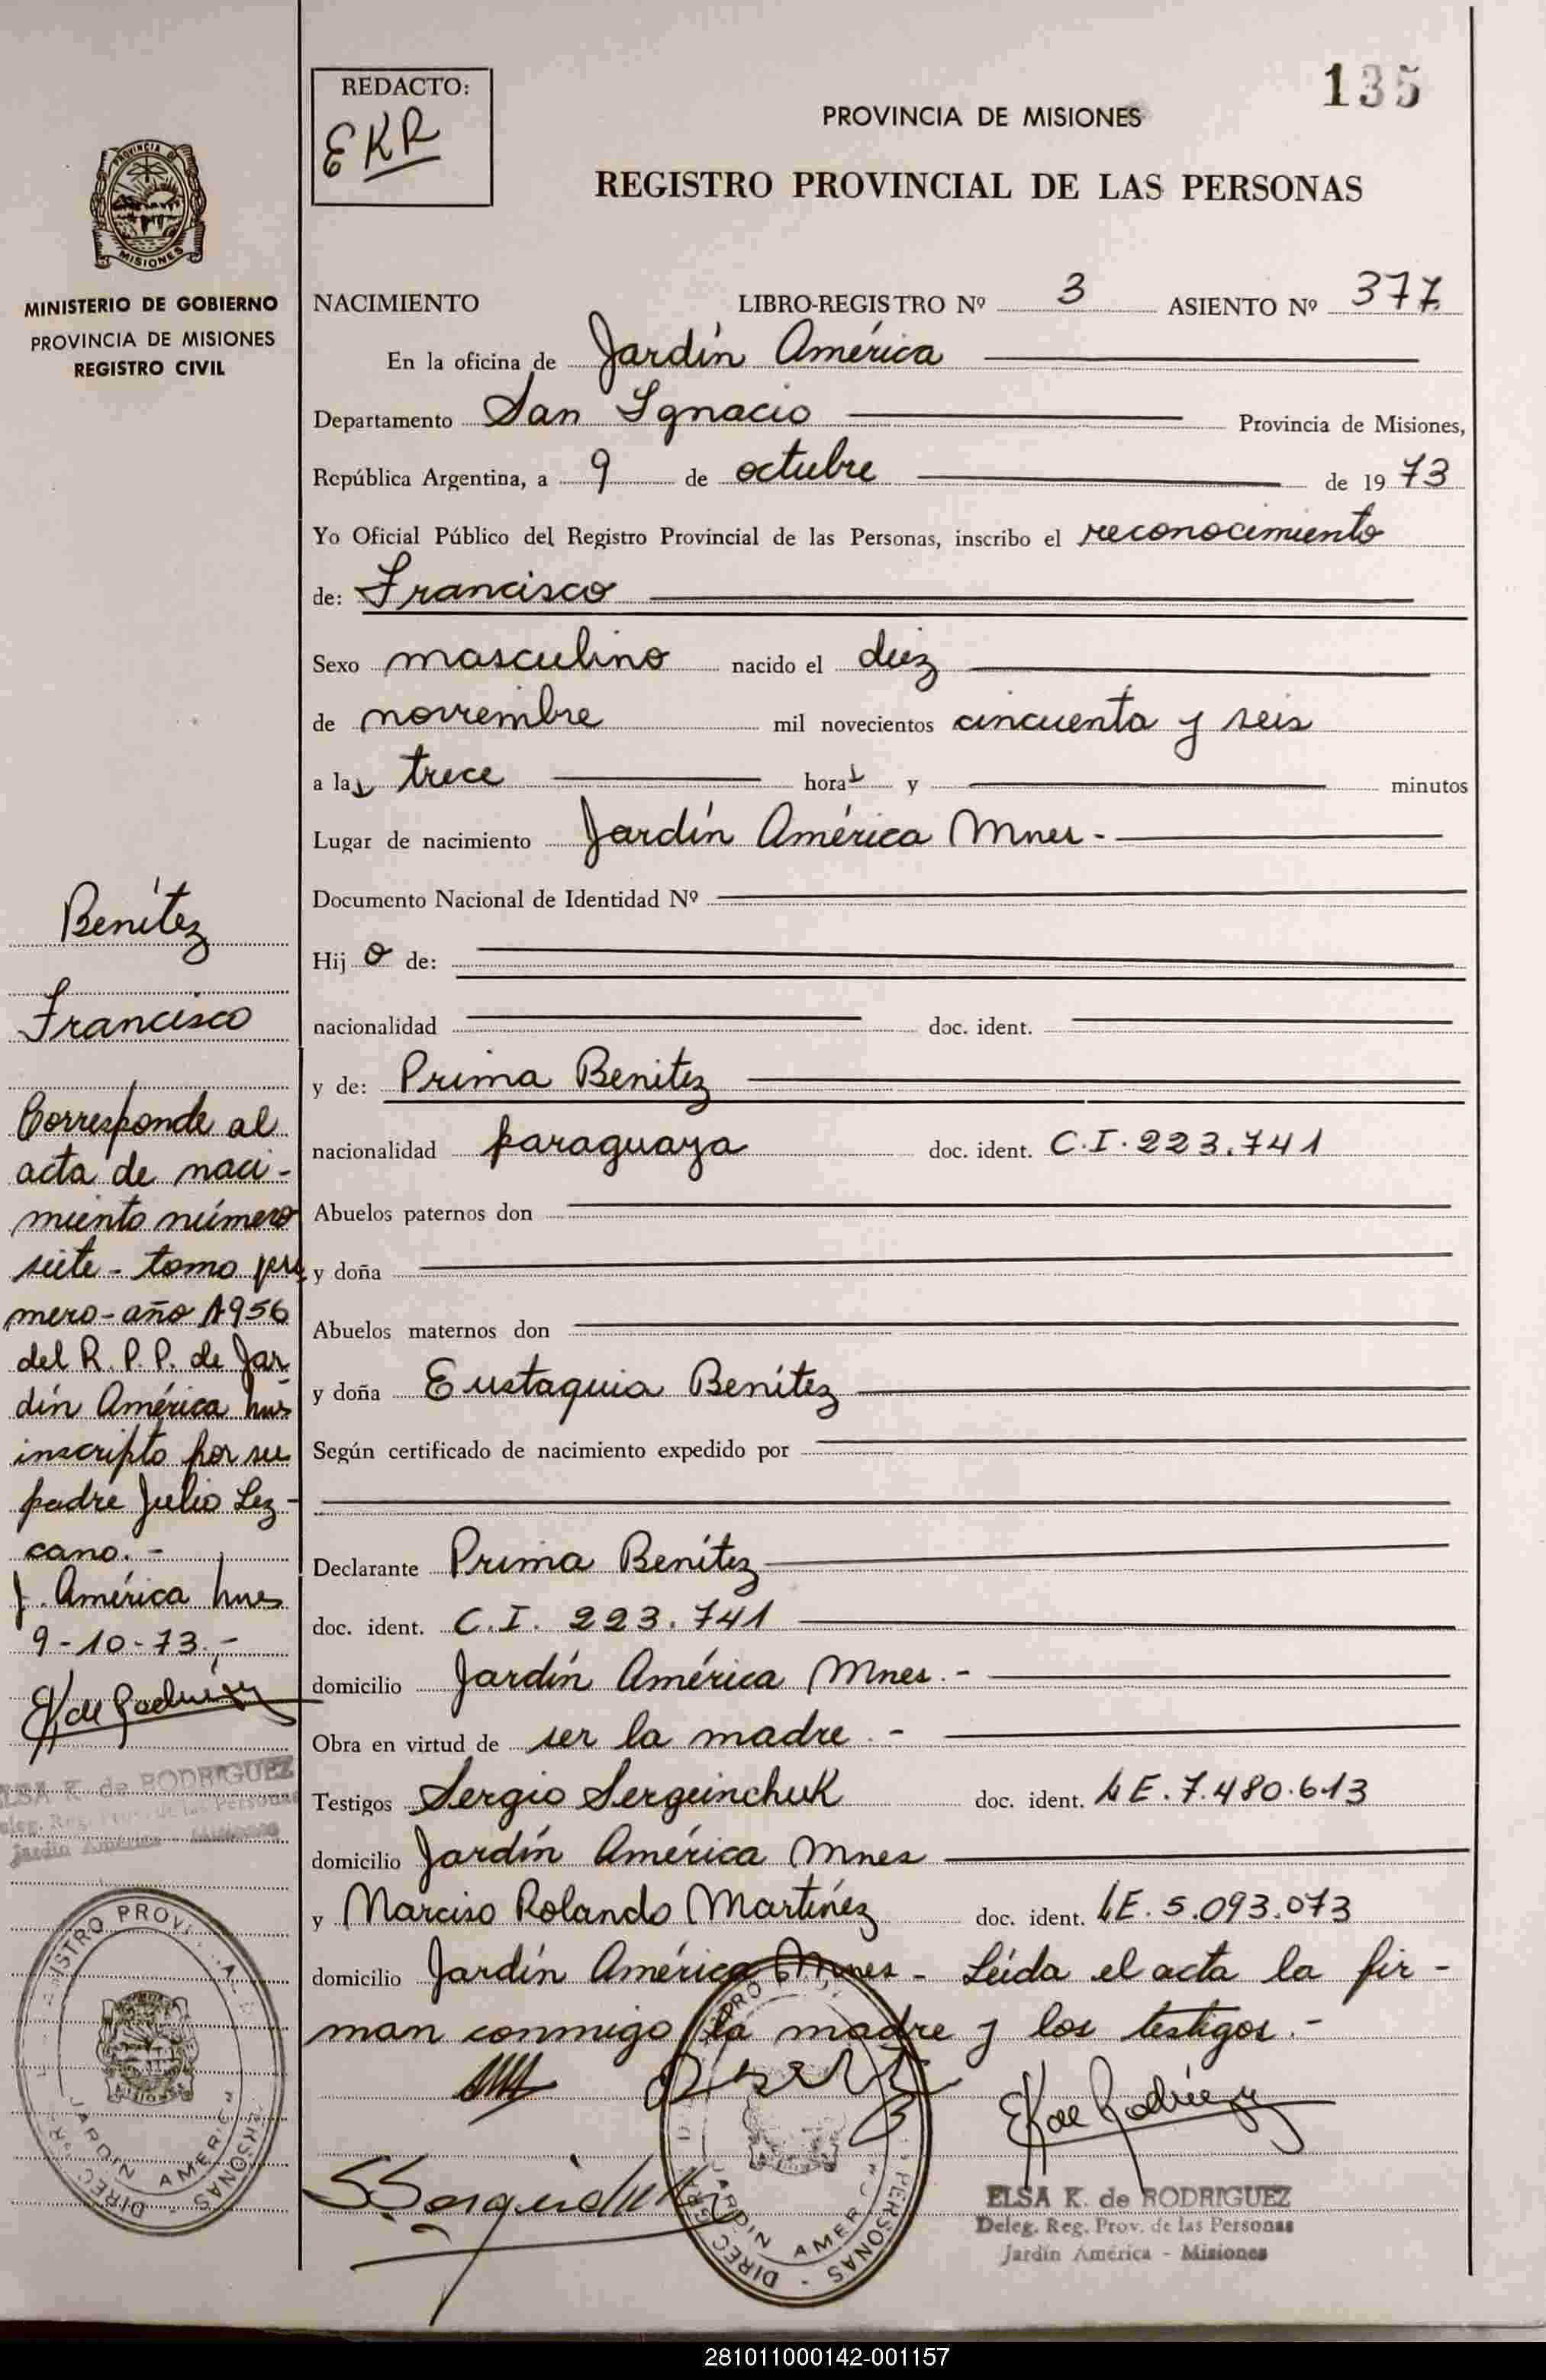 REDACTO:
EKR
135
PROVINCIA DE MISIONES
REGISTRO PROVINCIAL DE LAS PERSONAS
PROVINCIA DE
MISIONES
MINISTERIO DE GOBIERNO
PROVINCIA DE MISIONES
REGISTRO CIVIL
NACIMIENTO LIBRO-REGISTRO Nº 3 ASIENTO Nº 377
En la oficina de Jardín América
Departamento San Ignacio Provincia de Misiones,
República Argentina, a 9 de octubre de 1973
Yo Oficial Público del Registro Provincial de las Personas, inscribo el reconocimiento
de: Francisco
Sexo masculino nacido el diez
de noviembre mil novecientos cincuenta y seis
a las trece horas y minutos
Lugar de nacimiento Jardín América Mnes -
Documento Nacional de Identidad Nº
Hijo de:
nacionalidad doc. ident.
y de: Prima Benitez
nacionalidad paraguaya doc. ident. C.I. 223.741
Abuelos paternos don
y doña
Abuelos maternos don
y doña Eustaquia Benítez
Según certificado de nacimiento expedido por
Declarante Prima Benítez
doc. ident. C.I. 223.741
domicilio Jardín América Mnes.-
Obra en virtud de ser la madre.-
Testigos Sergio Sergeinchuk doc. ident. LE.7.480.613
domicilio Jardín América Mnes
y Narciso Rolando Martínez doc. ident. LE.5.093.073
domicilio Jardín América Mnes - Leída el acta la fir-
man conmigo la madre y los testigos.-
EK de Rodríguez
ELSA K. de RODRIGUEZ
Deleg. Reg. Prov. de las Personas
Jardín América - Misiones
Benítez
Francisco
Corresponde al
acta de naci-
miento número
siete - tomo pri
mero - año 1956
del R.P.P. de Jar
dín América Mnes
inscripto por su
padre Julio Lez-
cano.-
J. América Mnes
9-10-73.-
EK de Rodríguez
ELSA K. de RODRIGUEZ
Deleg. Reg. Prov. de las Personas
Jardín América - Misiones
JARDIN AMERICA
JARDIN AMERICA
281011000142-001157